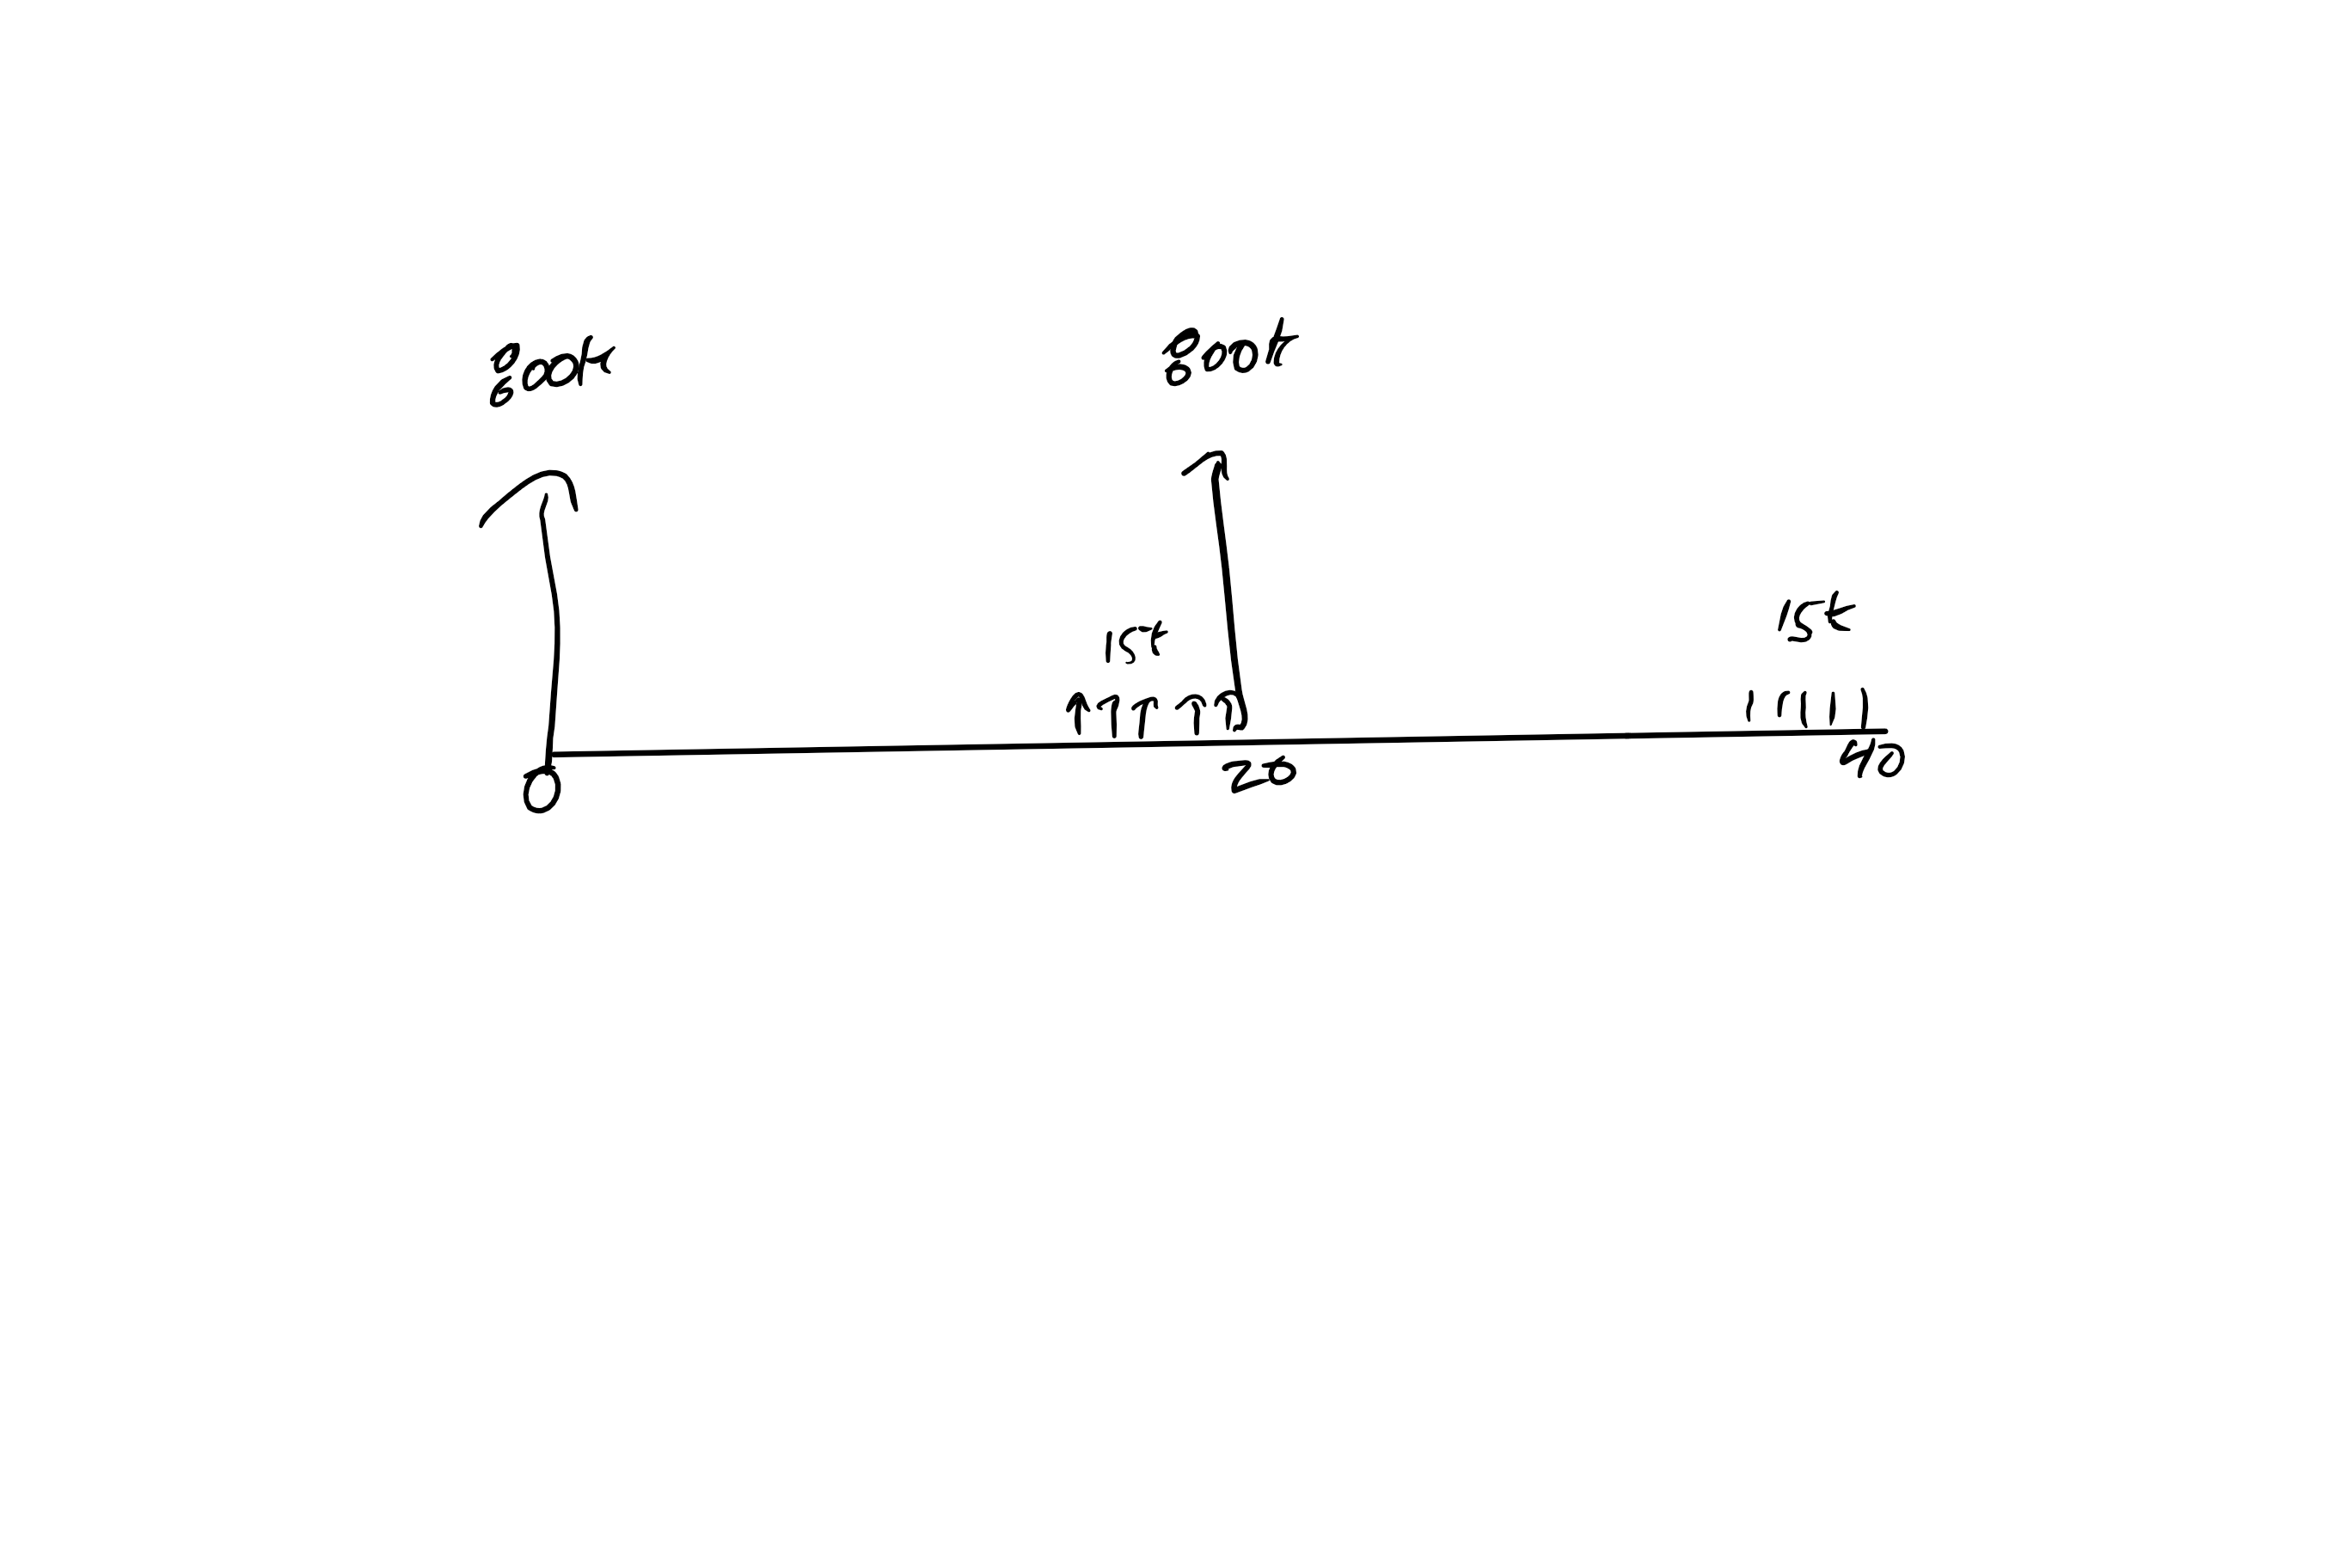 800k
800k
15k
15k
0
20
40